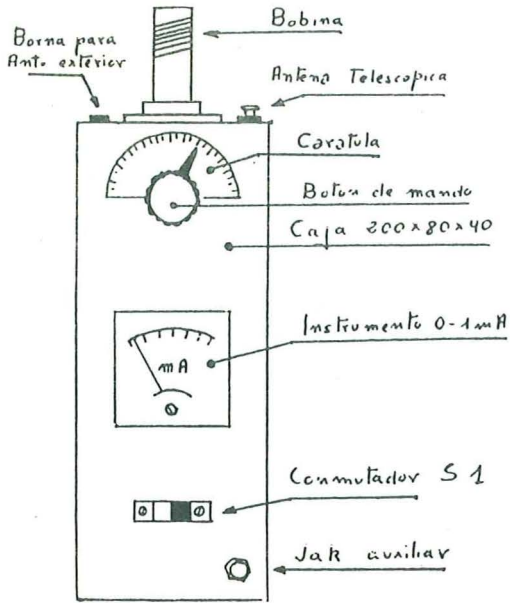 Bobina
Borna para
Ant. extérior
Antena Telescopica
Caratula
Boton de mando
Caja 200x80x40
Instrumento 0-1mA
mA
Conmutador S1
Jak auxiliar